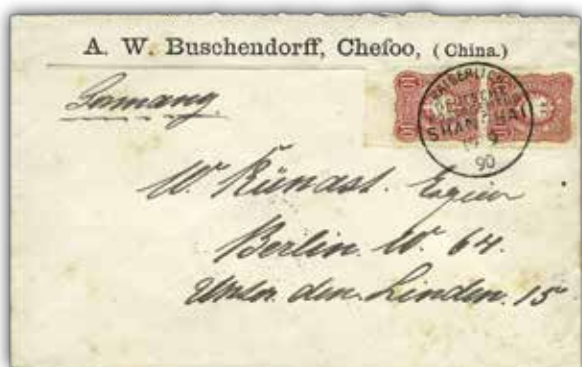 A. W. Buschendorff, Chefoo, (China.)
Germany.
KAISERLICH
DEUTSCHE
SHANGHAI
9
90
W. Künast. Esquire
Berlin. W. 64.
Unter den Linden. 15